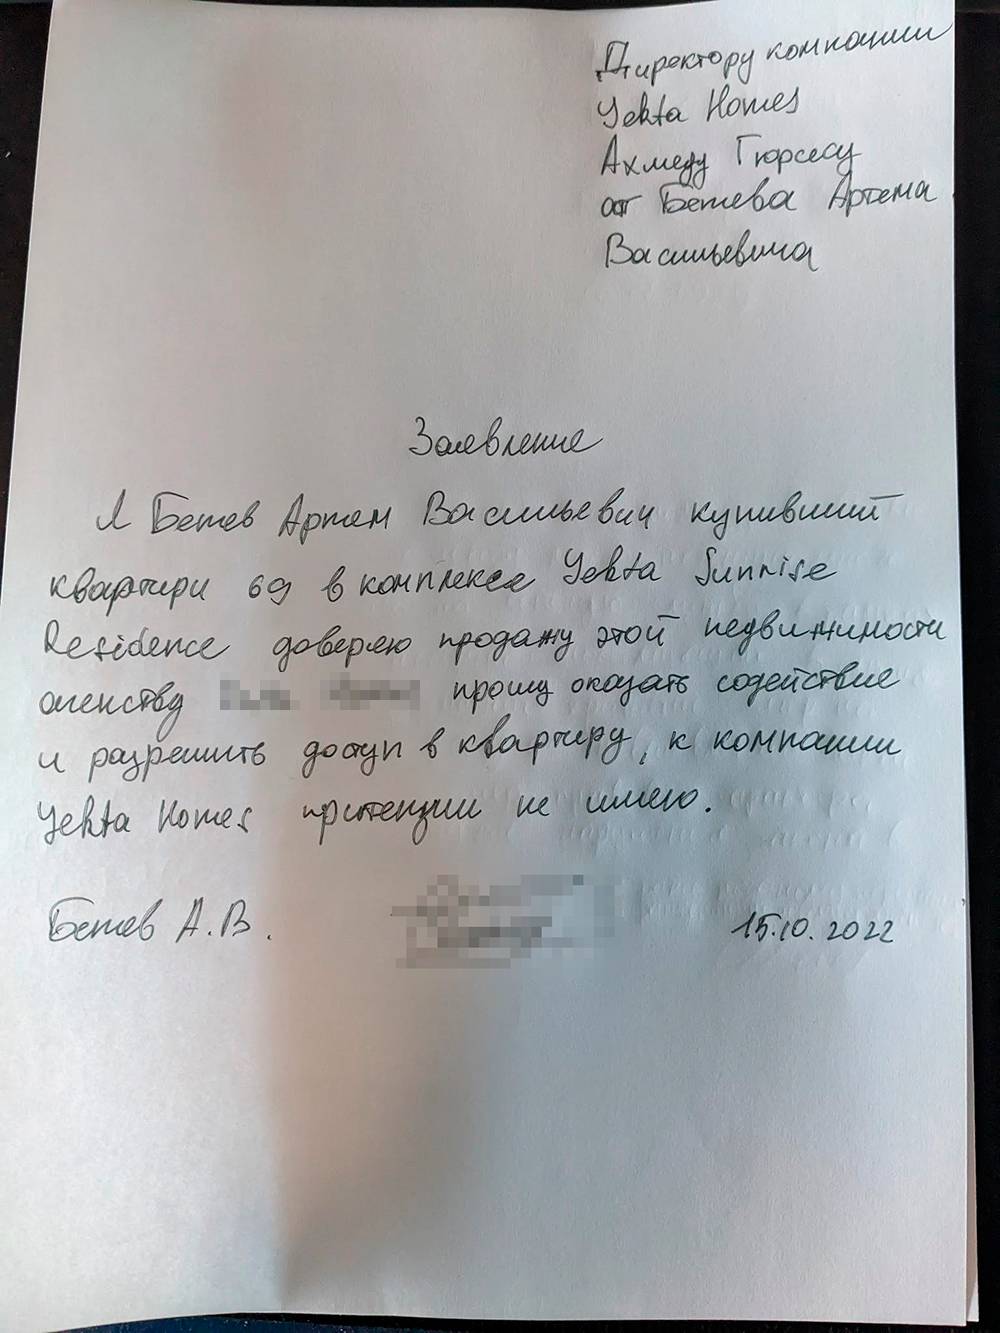 Директору компании
Yekta Homes
Ахмеду Гюрсесу
от Бетева Артема
Васильевича
Заявление
Я Бетев Артем Васильевич купивший
квартиру 69 в комплексе Yekta Sunrise
Residence доверяю продажу этой недвижимости
агенству прошу оказать содействие
и разрешить доступ в квартиру, к компании
Yekta Homes притензии не имею.
Бетев А.В.
15.10.2022